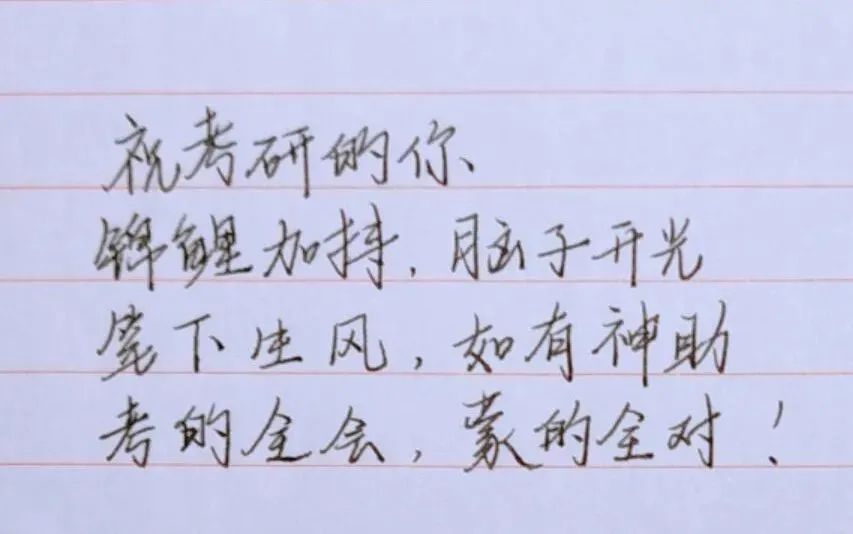 祝考研的你、
锦鲤加持，脑子开光
笔下生风，如有神助
考的全会，蒙的全对！